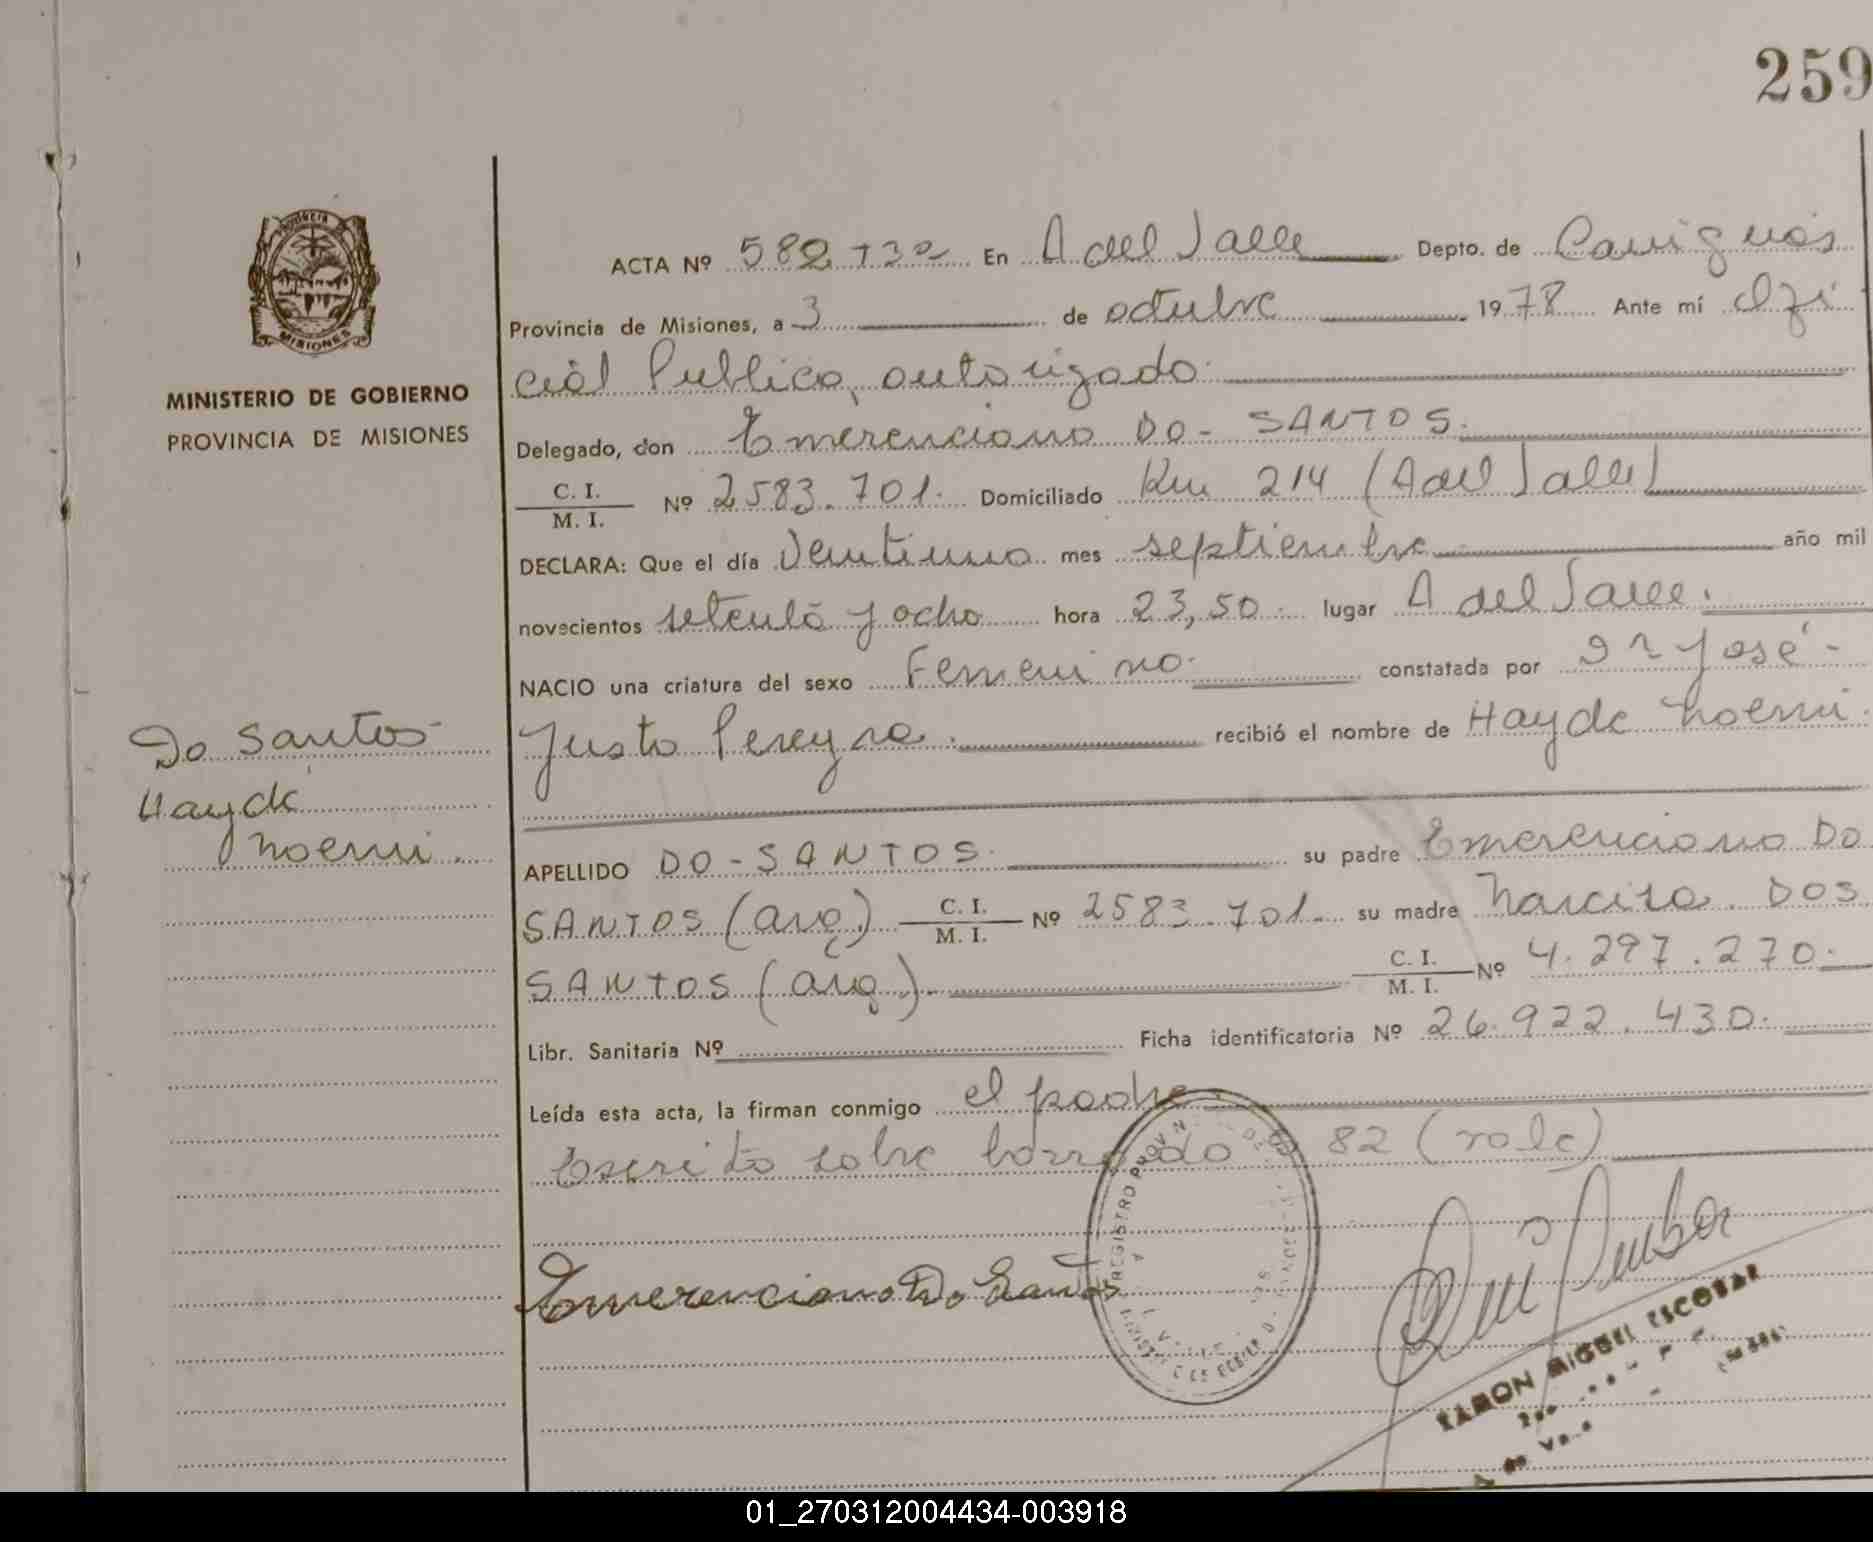 259
PROVINCIA
MISIONES
MINISTERIO DE GOBIERNO
PROVINCIA DE MISIONES
ACTA Nº 582 T3º En A del Valle Depto. de Cainguás
Provincia de Misiones, a 3 de octubre 1978 Ante mí Ofi
cial Publico, autorizado.
Delegado, don Emerenciano DO - SANTOS.
C. I.
M. I.
Nº 2583.701. Domiciliado Km 214 (A del Valle)
DECLARA: Que el día Veintiuno mes septiembre año mil
novecientos setenta y ocho hora 23,50. lugar A del Valle.
NACIO una criatura del sexo Femenino. constatada por Dr José
Justo Pereyra. recibió el nombre de Hayde Noemi.
Do Santos
Hayde
Noemi.
APELLIDO DO - SANTOS. su padre Emerenciano DO
SANTOS (arg.) C. I. M. I. Nº 2583.701. su madre Narcisa DOS
SANTOS (arg.) C. I. M. I. Nº 4.297.270.
Libr. Sanitaria Nº Ficha identificatoria Nº 26.922.430.
Leída esta acta, la firman conmigo el padre.
Escrito sobre borrado 82 (vale)
Emerenciano Do Santos
REGISTRO PROVIN
RAMON MIGUEL ESCOBAR
01_270312004434-003918